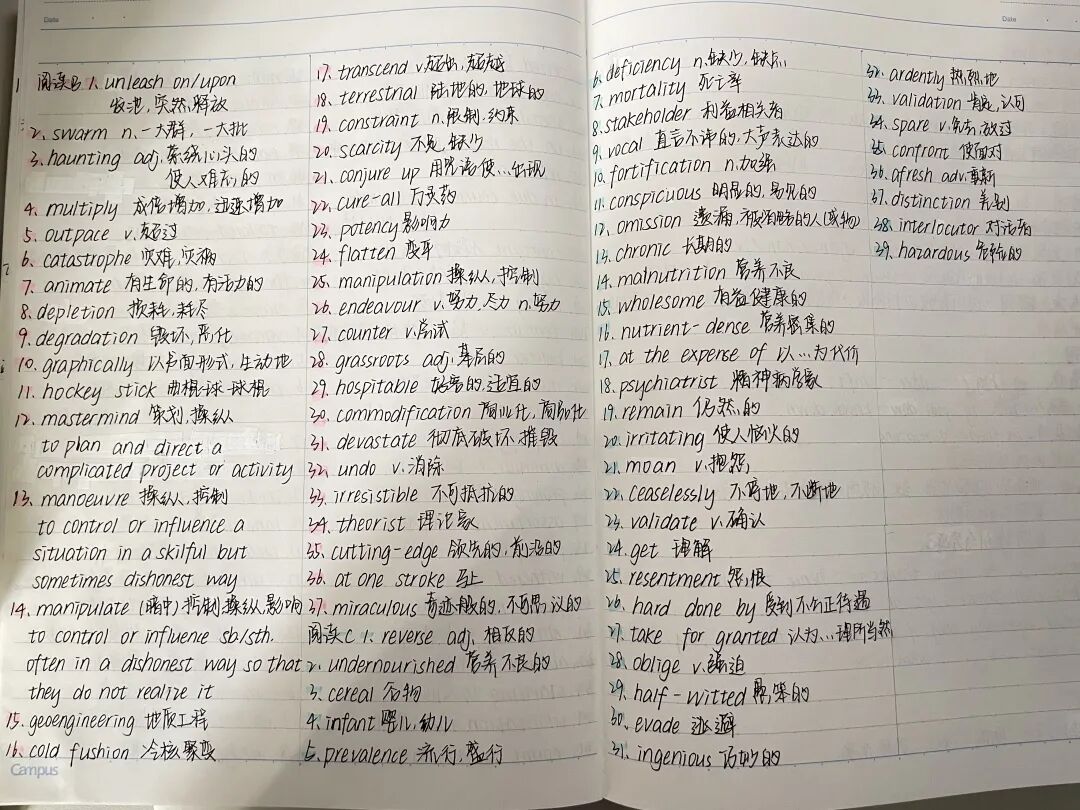 Date
1 阅读B 1. unleash on/upon
发泄,突然,释放
2. swarm n.一大群,一大批
3. haunting adj.萦绕心头的
使人难忘的
4. multiply 成倍增加,迅速增加
5. outpace v.超过
6. catastrophe 灾难,灾祸
7. animate 有生命的,有活力的
8. depletion 损耗,耗尽
9. degradation 毁坏,恶化
10. graphically 以书面形式,生动地
11. hockey stick 曲棍球球棍
12. mastermind 策划,操纵
to plan and direct a
complicated project or activity
13. manoeuvre 操纵,控制
to control or influence a
situation in a skilful but
sometimes dishonest way
14. manipulate (暗中)控制,操纵,影响
to control or influene sb/sth.
often in a dishonest way so that
they do not realize it
15. geoengineering 地质工程
16. cold fushion 冷核聚变
Campus
17. transcend v.超出,超越
18. terrestrial 陆地的,地球的
19. constraint n.限制,约束
20. scarcity 不足,缺少
21. conjure up 用咒语使...出现
22. cure-all 万灵药
23. potency 影响力
24. flatten 变平
25. manipulation 操纵,控制
26. endeavour v.努力,尽力 n.努力
27. counter v.尝试
28. grassroots adj.基层的
29. hospitable 好客的,适宜的
30. commodification 商业化,商品化
31. devastate 彻底破坏,摧毁
32. undo v.消除
33. irresistible 不可抵抗的
34. theorist 理论家
35. cutting-edge 领先的,前沿的
36. at one stroke 马上
37. miraculous 奇迹般的,不可思议的
阅读C 1. reverse adj.相反的
2. undernourished 营养不良的
3. cereal 谷物
4. infant 婴儿,幼儿
5. prevalence 流行,盛行
Date
6. deficiency n.缺少,缺点
7. mortality 死亡率
8. stakeholder 利益相关者
9. vocal 直言不讳的,大声表达的
10. fortification n.加强
11. conspicuous 明显的,易见的
12. omission 遗漏,被忽略的人(或物)
13. chronic 长期的
14. malnutrition 营养不良
15. wholesome 有益健康的
16. nutrient-dense 营养密集的
17. at the expense of 以...为代价
18. psychiatrist 精神病学家
19. remain 仍然的
20. irritating 使人恼火的
21. moan v.抱怨
22. ceaselessly 不停地,不断地
23. validate v.确认
24. get 理解
25. resentment 怨恨
26. hard done by 受到不公正待遇
27. take for granted 认为...理所当然
28. oblige v.强迫
29. half-witted 愚笨的
30. evade 逃避
31. ingenious 巧妙的
32. ardently 热烈地
33. validation 肯定,认可
34. spare v.免去,放过
35. confront 使面对
36. afresh adv.重新
37. distinction 差别
38. interlocutor 对话者
39. hazardous 危险的